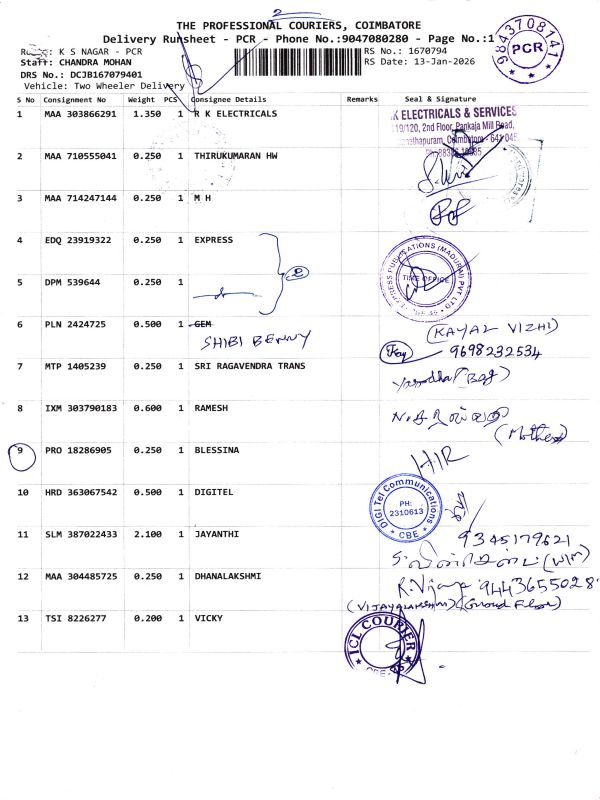 2
THE PROFESSIONAL COURIERS, COIMBATORE
Delivery Runsheet - PCR - Phone No.:9047080280 - Page No.:1
9843708141
PCR
K S NAGAR - PCR
RS No.: 1670794
Staff: CHANDRA MOHAN
RS Date: 13-Jan-2026
DRS No.: DCJB167079401
Vehicle: Two Wheeler Delivery
S No Consignment No Weight PCS Consignee Details Remarks Seal & Signature
1 MAA 303866291 1.350 1 R K ELECTRICALS
K ELECTRICALS & SERVICES
19/120, 2nd Floor, Pankaja Mill Road,
Coimbatore - 641 045
2 MAA 710555041 0.250 1 THIRUKUMARAN HW
3 MAA 714247144 0.250 1 M H
4 EDQ 23919322 0.250 1 EXPRESS
2
EXPRESS PUBLICATIONS (MADURAI) PVT LTD
TIME OFFICE
5 DPM 539644 0.250 1
6 PLN 2424725 0.500 1 GEM
SHIBI BENNY
(KAYAL VIZHI)
9698232534
7 MTP 1405239 0.250 1 SRI RAGAVENDRA TRANS
8 IXM 303790183 0.600 1 RAMESH
(Mother)
9 PRO 18286905 0.250 1 BLESSINA
H/R
10 HRD 363067542 0.500 1 DIGITEL
DIGI Tel Communications
PH:
2310613
* CBE *
11 SLM 387022433 2.100 1 JAYANTHI
9345179621
12 MAA 304485725 0.250 1 DHANALAKSHMI
R.Vijaya 9443655028
(VIJAYALAKSHMI) (Ground Floor)
13 TSI 8226277 0.200 1 VICKY
ICL COURIER